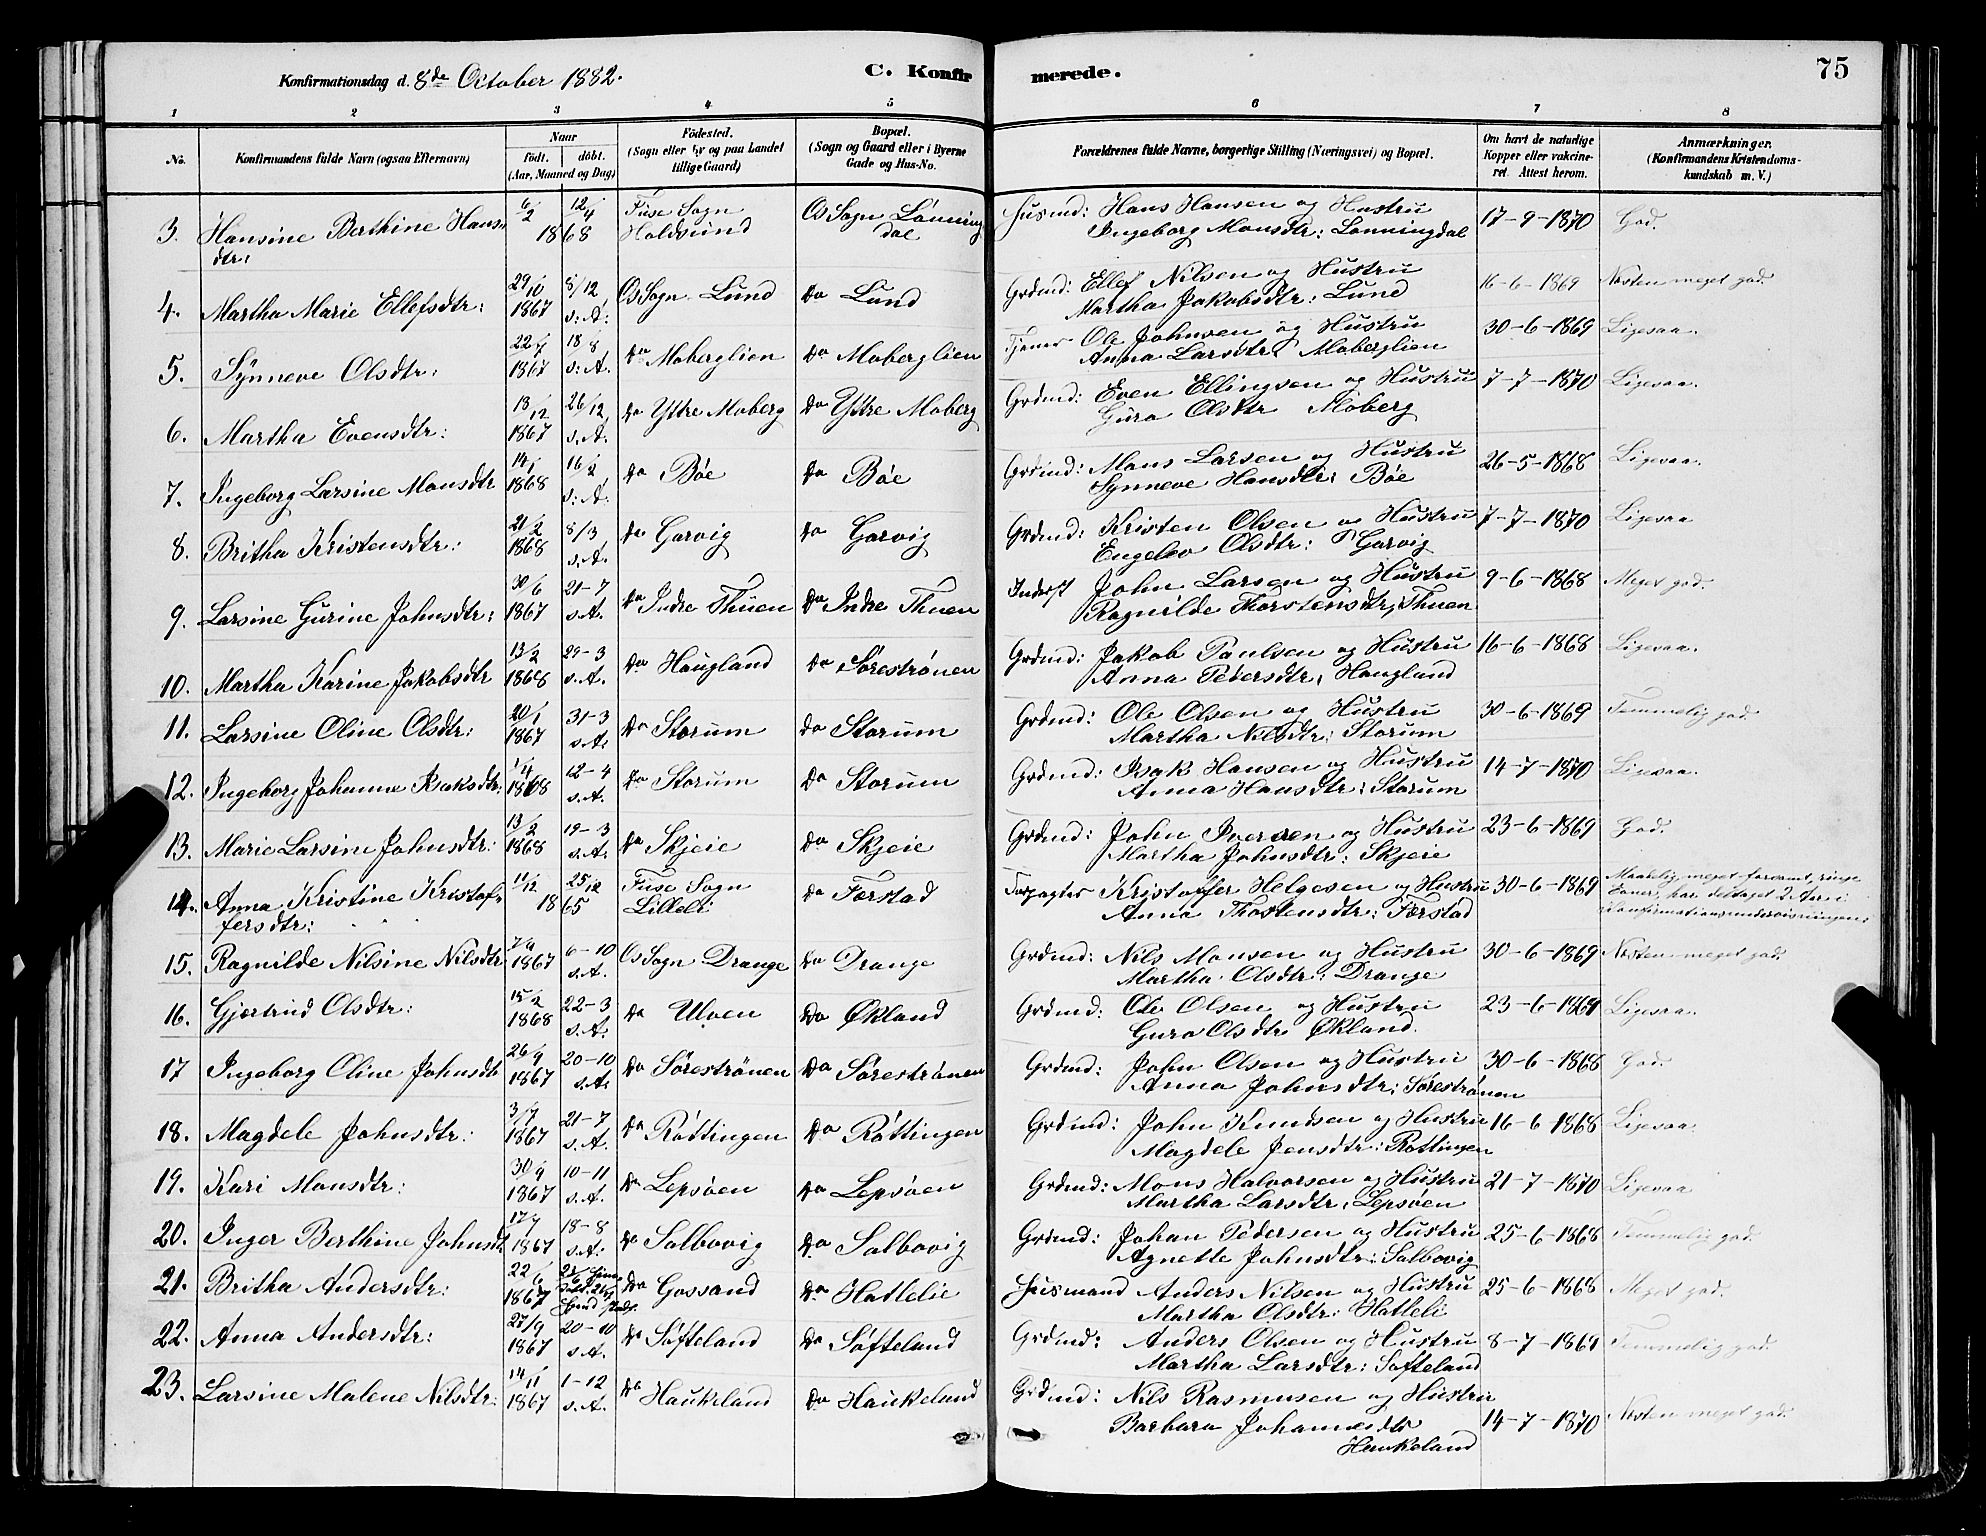 Konfirmationsdag d. 8de October 1882.
C. Konfirmerede.
75
1 2 3 4 5 6 7 8
No.
Konfirmandens fulde Navn (ogsaa Efternavn)
Naar
födt. döbt.
(Aar, Maaned og Dag)
Födested.
(Sogn eller By og paa Landet
tillige Gaard)
Bopæl.
(Sogn og Gaard eller i Byerne
Gade og Hus-No.
Forældrenes fulde Navne, borgerlige Stilling (Næringsvei) og Bopæl.
Om havt de naturlige
Kopper eller vakcine-
ret. Attest herom.
Anmærkninger.
(Konfirmandens Kristendoms-
kundskab m. V.)
3. Hansine Berthine Hans- 6/2 12/4 Fuse Sogn Os Sogn Lönning Husmd: Hans Hansen og Hustru 17-9-1870 God.
dtr: 1868 Holdsund dal Ingeborg Monsdtr: Lönningdal
4. Martha Marie Ellefsdtr: 29/10 8/12 Os Sogn Lund Do Lund Grdmd: Ellef Nilsen og Hustru 16-6-1869 Næsten meget god.
1867 s. A. Martha Jakobsdtr: Lund
5. Synneve Olsdtr: 22/7 18/8 Do Moberglien Do Moberglien Tjener Ole Johnsen og Hustru 30-6-1869 Ligesaa.
1867 s. A. Anna Larsdtr: Moberglien
6. Martha Evensdtr: 13/12 26/12 Do Yttre Moberg Do Yttre Moberg Grdmd: Even Ellingsen og Hustru 7-7-1870 Ligesaa.
1867 s. A. Guro Olsdtr Moberg
7. Ingeborg Larsine Monsdtr 14/1 16/2 Do Böe Do Böe Grdmd: Mons Larsen og Hustru 26-5-1868 Ligesaa.
1868 s. A. Synneve Hansdtr: Böe
8. Britha Kristensdtr: 21/2 8/3 Do Garvig Do Garvig Grdmd: Kristen Olsen og Hustru 7-7-1870 Ligesaa
1868 s. A. Engelev Olsdtr: Garvig
9. Larsine Gurine Johnsdtr: 30/6 21-7 Do Indre Thuen Do Indre Thuen Inderst John Larsen og Hustru 9-6-1868 Meget god.
1867 s. A. Ragnilde Thorstensdtr: Thuen
10. Martha Karine Jakobsdtr 13/2 29-3 Do Haugland Do Söreströnen Grdmd: Jakob Paulsen og Hustru 16-6-1868 Ligesaa.
1868 s. A. Anna Pedersdtr: Haugland
11. Larsine Oline Olsdtr: 20/1 31-3 Do Storum Do Storum Grdmd: Ole Olsen og Hustru 30-6-1869 Temmelig god.
1867 s. A. Martha Nilsdtr: Storum
12. Ingeborg Johanne Isaksdtr: 1/4 12-4 Do Storum Do Storum Grdmd: Isak Hansen og Hustru 14-7-1870 Ligesaa.
1868 s. A. Anna Hansdtr: Storum
13. Marie Larsine Johnsdtr: 13/2 19-3 Do Skjeie Do Skjeie Grdmd: John Iversen og Hustru 23-6-1869 God.
1868 s. A. Martha Johnsdtr: Skjeie
14. Anna Kristine Kristof- 11/12 25/12 Fuse Sogn Do Færstad Forpagter Kristoffer Helgesen og Hustru 30-6-1869 Maadelig meget forsömt, ringe
fersdtr: 1865 Lilleli Anna Thostensdtr: Færstad Evner, har deltaget 2 Aar i
Konfirmationsundervisningen.
15. Ragnilde Nilsine Nilsdtr 7/9 6-10 Os Sogn Drange Do Drange Grdmd: Nils Monsen og Hustru 30-6-1869 Næsten meget god.
1867 s. A. Martha Olsdtr: Drange
16. Gjertrud Olsdtr: 15/2 22-3 Do Ulven Do Økland Grdmd: Ole Olsen og Hustru 23-6-1869 Ligesaa.
1868 s. A. Guro Olsdtr Økland.
17 Ingeborg Oline Johnsdtr 26/9 20-10 Do Söreströnen Do Söreströnen Grdmd: John Olsen og Hustru 30-6-1868 God.
1867 s. A. Anna Johnsdtr: Söreströnen
18. Magdele Johnsdtr: 3/7 21-7 Do Röttingen Do Röttingen Grdmd: John Knudsen og Hustru 16-6-1868 Ligesaa.
1867 s. A. Magdele Jensdtr: Röttingen
19. Kari Monsdtr: 30/9 10-11 Do Lepsöen Do Lepsöen Grdmd: Mons Halvorsen og Hustru 21-7-1870 Ligesaa
1867 s. A. Martha Larsdtr: Lepsöen
20. Inger Berthine Johnsdtr 17/7 18-8 Do Solbovig Do Solbovig Grdmd: Johan Pedersen og Hustru 25-6-1868 Temmelig god.
1867 s. A. Agnette Johnsdtr: Solbovig
21. Britha Andersdtr: 22/6 Do Gossand Do Hatlelie Husmand Anders Nilsen og Hustru 25-6-1868 Meget god.
1867 Martha Olsdtr: Hatleli
22. Anna Andersdtr: 27/9 20-10 Do Söfteland Do Söfteland Grdmd: Anders Olsen og Hustru 8-7-1869 Temmelig god.
1867 s. A. Martha Larsdtr: Söfteland
23. Larsine Malene Nilsdtr: 14/11 1-12 Do Haukeland Do Haukeland Grdmd: Nils Rasmusen og Hustru 14-7-1870 Næsten meget god.
1867 s. A. Barbara Johannesdtr
Haukeland